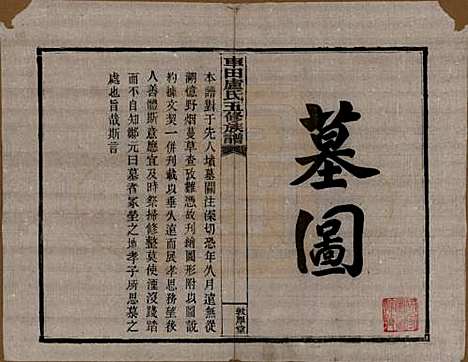 墓圖
車田盧氏五修族譜
敦學堂
本譜對于先人墳墓關注深切恐年久月遠無從
溯憶野烟蔓草查攷難憑故刋繪圖形附以圖說
約據文契一併刋載以垂久遠而展孝思務望後
人善體斯意應宜及時祭掃修整莫使湮沒踐踏
而不自知鄭元曰墓者冢塋之地孝子所思慕之
處也旨哉斯言